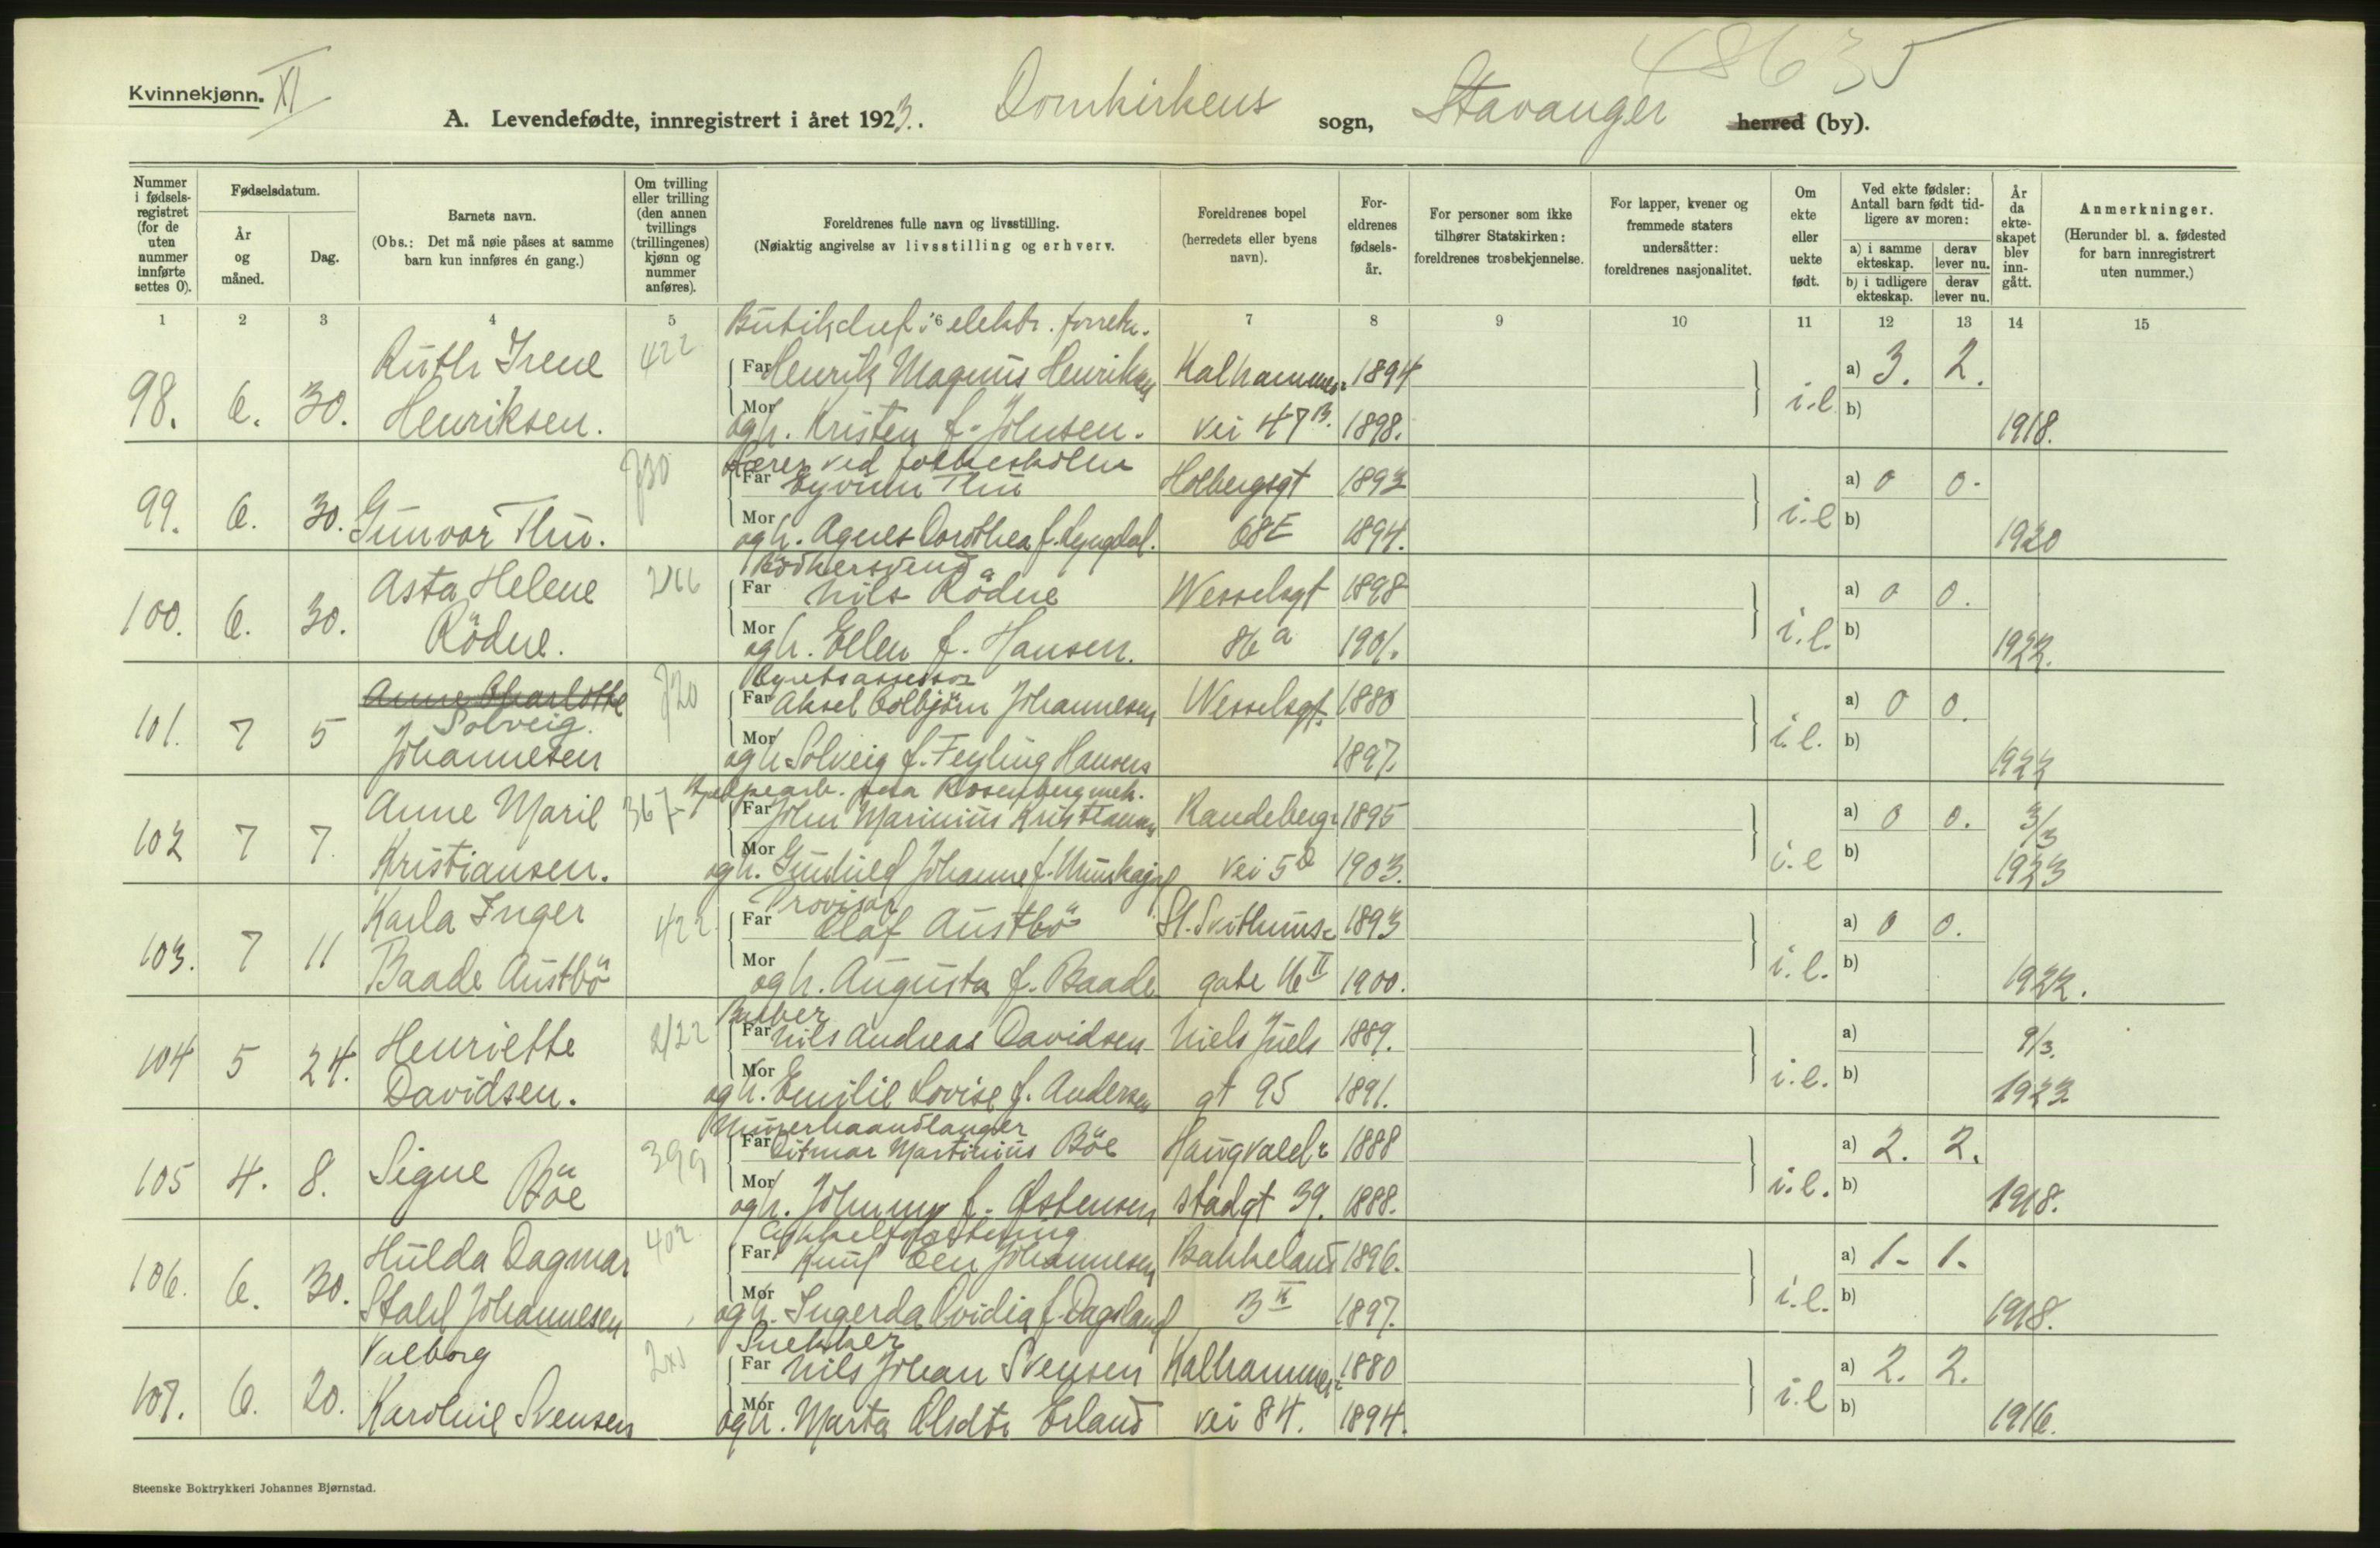 48635
Kvinnekjønn. XI
A. Levendefødte, innregistrert i året 1923. Domkirkens sogn, Stavanger herred (by).
Nummer i fødselsregistret (for de uten nummer innførte settes 0).
Fødselsdatum.
År og måned.
Dag.
Barnets navn.
(Obs.: Det må nøie påses at samme barn kun innføres én gang.)
Om tvilling eller trilling (den annen tvillings (trillingenes) kjønn og nummer anføres).
Foreldrenes fulle navn og livsstilling.
(Nøiaktig angivelse av livsstilling og erhverv.
Foreldrenes bopel (herredets eller byens navn).
Foreldrenes fødselsår.
For personer som ikke tilhører Statskirken: foreldrenes trosbekjennelse.
For lapper, kvener og fremmede staters undersåtter: foreldrenes nasjonalitet.
Om ekte eller uekte født.
Ved ekte fødsler: Antall barn født tidligere av moren:
a) i samme ekteskap. derav lever nu.
b) i tidligere ekteskap. derav lever nu.
År da ekteskapet blev inngått.
Anmerkninger.
(Herunder bl. a. fødested for barn innregistrert uten nummer.)
1 2 3 4 5 6 7 8 9 10 11 12 13 14 15
Butikchef i elektr. forretn.
Ruth Irene 422 Far Henrik Magnus Henriksen Kalhammer 1894 a) 3. 2.
98. 6. 30. Henriksen. Mor og h. Kristen f. Johnsen. vei 47 B. 1898. i.e b) 1918.
Lærer ved folkeskolen
730 Far Eyvinn Thu Holbergsgt 1893 a) 0 0.
99. 6. 30. Gunvor Thu. Mor og h. Agnes Dorothea f. Lyngdal. 68E 1894. i.e b) 1920
Bödkersvend
Asta Helene 266 Far Nils Rödne Wesselsgt 1898 a) 0 0.
100. 6. 30. Rödne. Mor og h. Ellen f. Hansen. 86 a 1901. i.e. b) 1922.
Byretsassessor
Anne Charlotte 720 Far Aksel Colbjörn Johannesen Wesselsgt. 1880 a) 0 0.
Solveig.
101. 7 5 Johannesen Mor og h. Solveig f. Feyling Hansen 1897. i.e. b) 1922
Hjelpearb. paa Rosenberg mek.
Anne Maril 367 Far John Marinius Kristiansen Randeberg 1895 a) 0 0. 3/3
102 7 7. Kristiansen. Mor og h. Gunhild Johanne f. vei 5 1903. i.e b) 1923
Provisor
Karla Inger 422 Far Olaf Austbö St. Svithuns 1893 a) 0 0.
103. 7 11 Baade Austbö Mor og h. Augusta f. Baade gate 16 II 1900. i.e. b) 1922.
Barber
Henriette 2/22 Far Nils Andreas Davidsen Niels Juels 1889. a) 9/3.
104 5 24. Davidsen. Mor og h. Emilie Lovise f. Andersen gt 95 1891. i.e. b) 1923
Murerhaandlanger
Signe 399 Far Ditmar Martinius Böe Haugvald 1888 a) 2. 2.
105 4. 8. Böe Mor og h. Johanna f. Østensen stadgt 39. 1888. i.e. b) 1918.
Hulda Dagmar 402 Far Knut Johannesen Bakkeland 1896. a) 1- 1.
106. 6. 30. Stahl Johannesen Mor og h. Ingerda Ovidia f. Dagsland 3 II 1897. i.e. b) 1918.
Snekker
Valborg Far Nils Johan Svensen Kalhammer 1880 a) 2. 2.
107. 6. 20. Karoline Svensen Mor og h. Marta Olsdtr Erland vei 84. 1894. i.e b) 1916.
Steenske Boktrykkeri Johannes Bjørnstad.